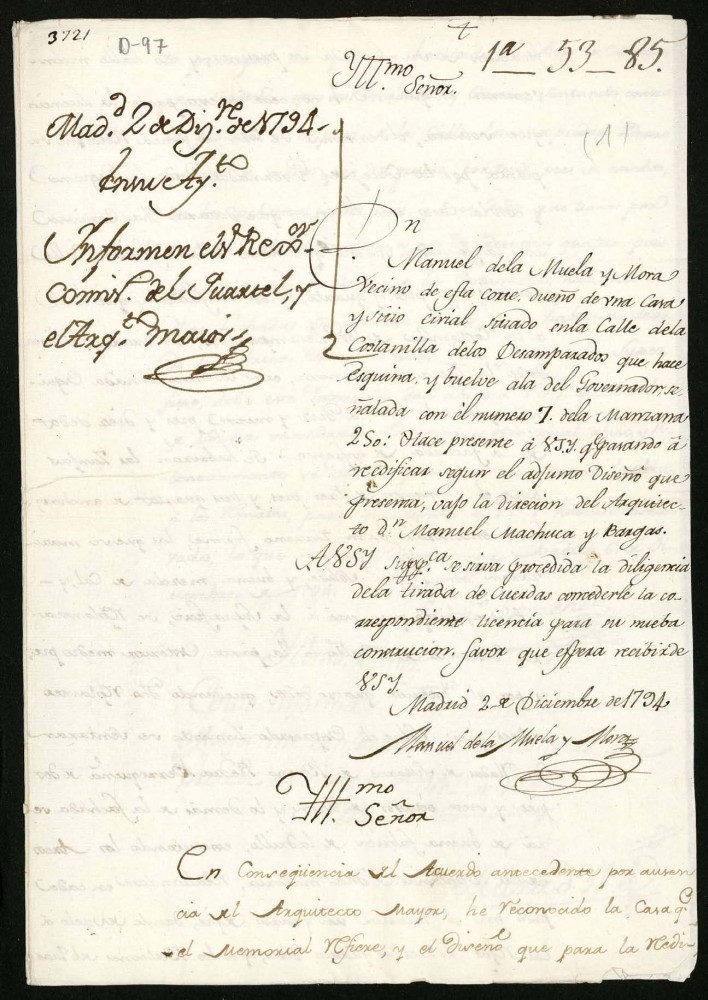 3721
D-97
1a 53-85.
Yll.mo
Señor.
(1)
Mad.d 2 de Diz.re de 1794
En su Ay.to
Informen el S.r Rexor
Comis.o del Quartel, y
el Arq.to maior
Dn
Manuel dela Muela y Mora
Vecino de esta corte, dueño de vna Casa
y sitio erial situado enla Calle dela
Costanilla delos Desamparados que hace
esquina, y buelve ala del Governador, se-
ñalada con el numero 7. dela Manzana
250: Hace presente á VSY. q.e pasando á
reedificar segun el adjunto Diseño que
presenta, vajo la direcion del Arquitec-
to d.n Manuel Machuca y Bargas.
A VSY supp.ca se sirva procedida la diligencia
dela tirada de Cuerdas concederle la co-
rrespondiente licencia para su nueba
construcion. favor que espera recibir de
VSY.
Madrid 2 de Diciembre de 1794
Manuel dela Muela y Mora
Yll.mo
Señor
En Conseqüencia del Acuerdo antecedente por ausen
cia del Arquitecto Mayor, he reconocido la Casa q.e
el Memorial refiere, y el diseño que para la Redi-